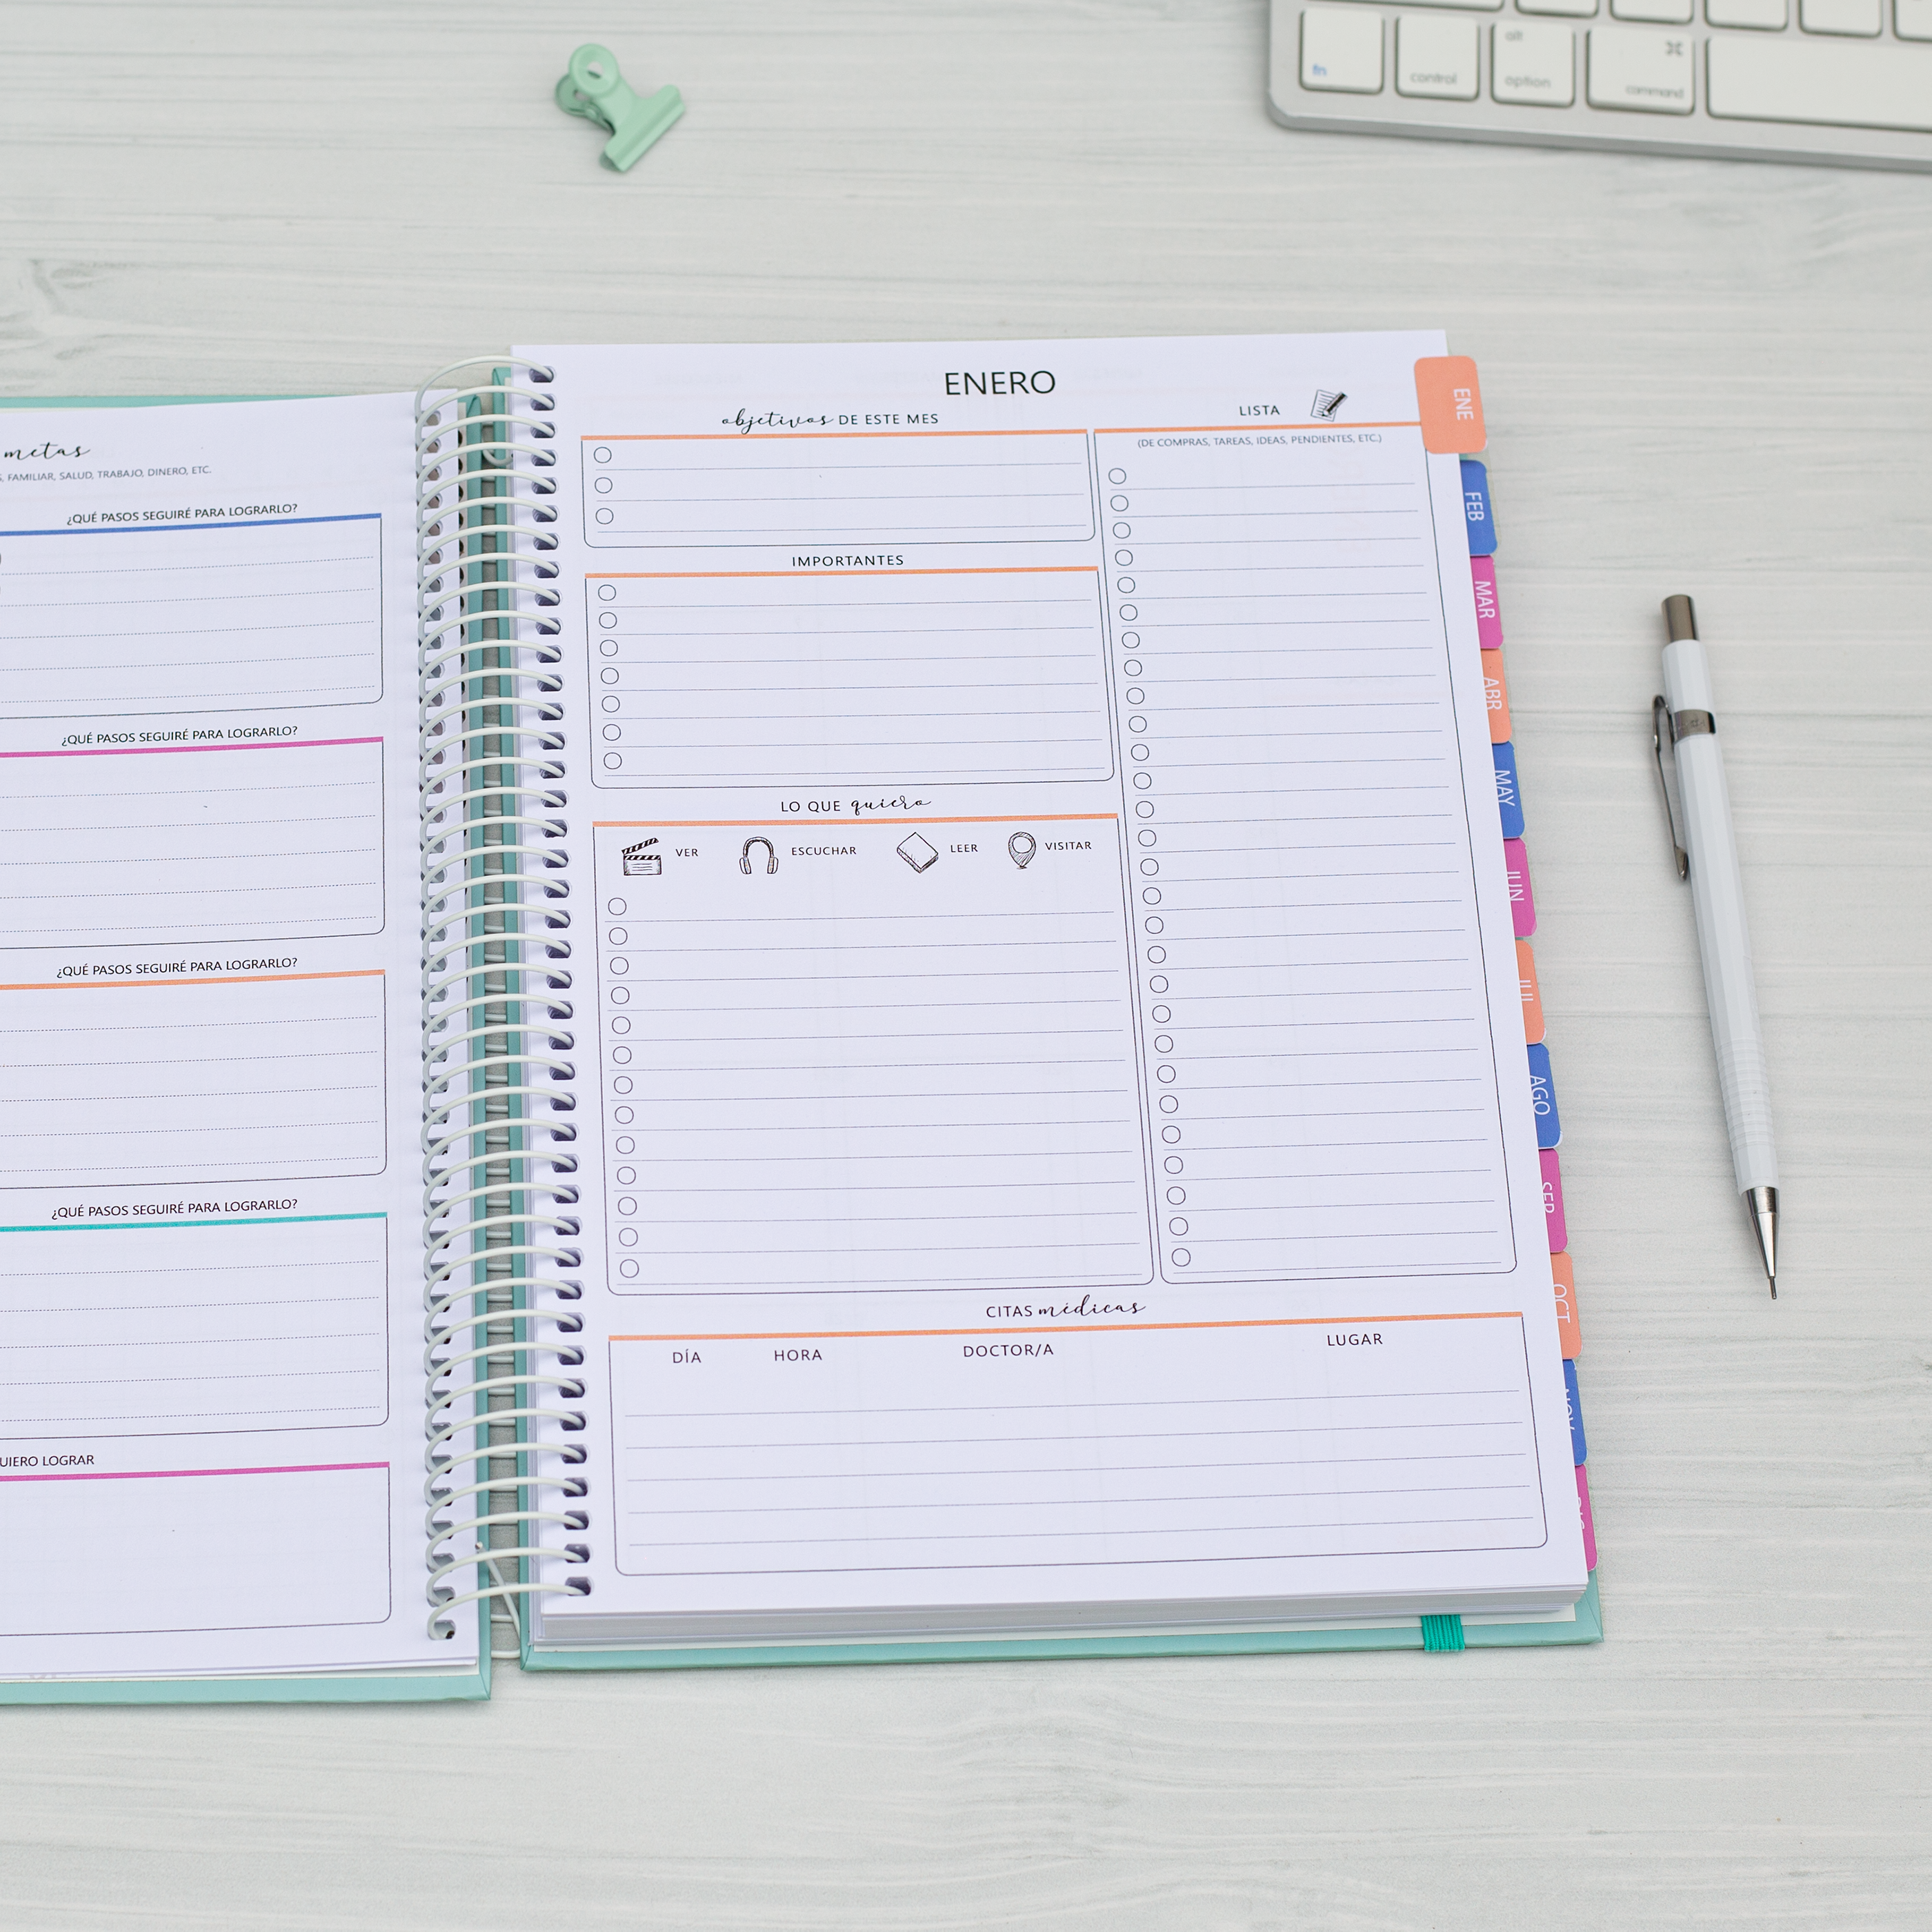 fn
control
alt
option
⌘
command
metas
FAMILIAR, SALUD, TRABAJO, DINERO, ETC.
¿QUÉ PASOS SEGUIRÉ PARA LOGRARLO?
¿QUÉ PASOS SEGUIRÉ PARA LOGRARLO?
¿QUÉ PASOS SEGUIRÉ PARA LOGRARLO?
¿QUÉ PASOS SEGUIRÉ PARA LOGRARLO?
UIERO LOGRAR
ENERO
objetivos DE ESTE MES
LISTA
(DE COMPRAS, TAREAS, IDEAS, PENDIENTES, ETC.)
IMPORTANTES
LO QUE quiero
VER ESCUCHAR LEER VISITAR
CITAS médicas
DÍA HORA DOCTOR/A LUGAR
ENE
FEB
MAR
ABR
MAY
JUN
JUL
AGO
SEP
OCT
NOV